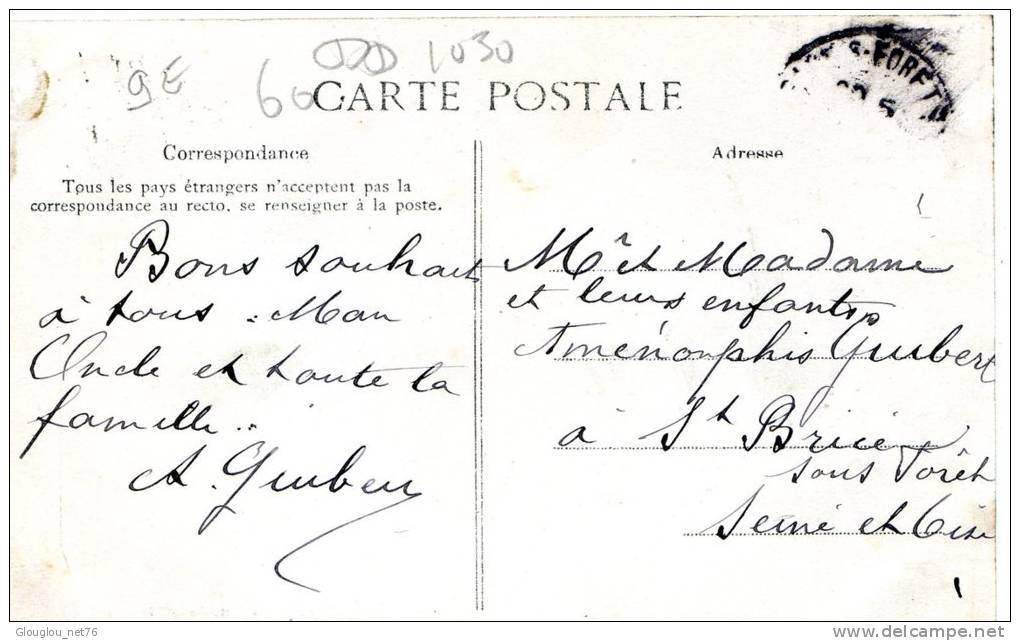 1030
9E
60
CARTE POSTALE
S-FORET
Correspondance
Adresse
Tous les pays étrangers n'acceptent pas la
correspondance au recto, se renseigner à la poste.
Bons souhait
à tous. Mon
Oncle et toute la
famille..
A. Guibert
Mr et Madame
et leurs enfants
Aménonphis Guibert
à St Brice
sous Forêt
Seine et Oise
Glouglou_net76
delcampe.net